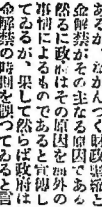 あるが、　　　つく財政緊縮と
金解禁がその主なる原因である
然るに政府はその原因を海外の
事情によるものであると宣傳し
てゐるが、果して然らば政府は
金解禁の時期を誤つてゐると言